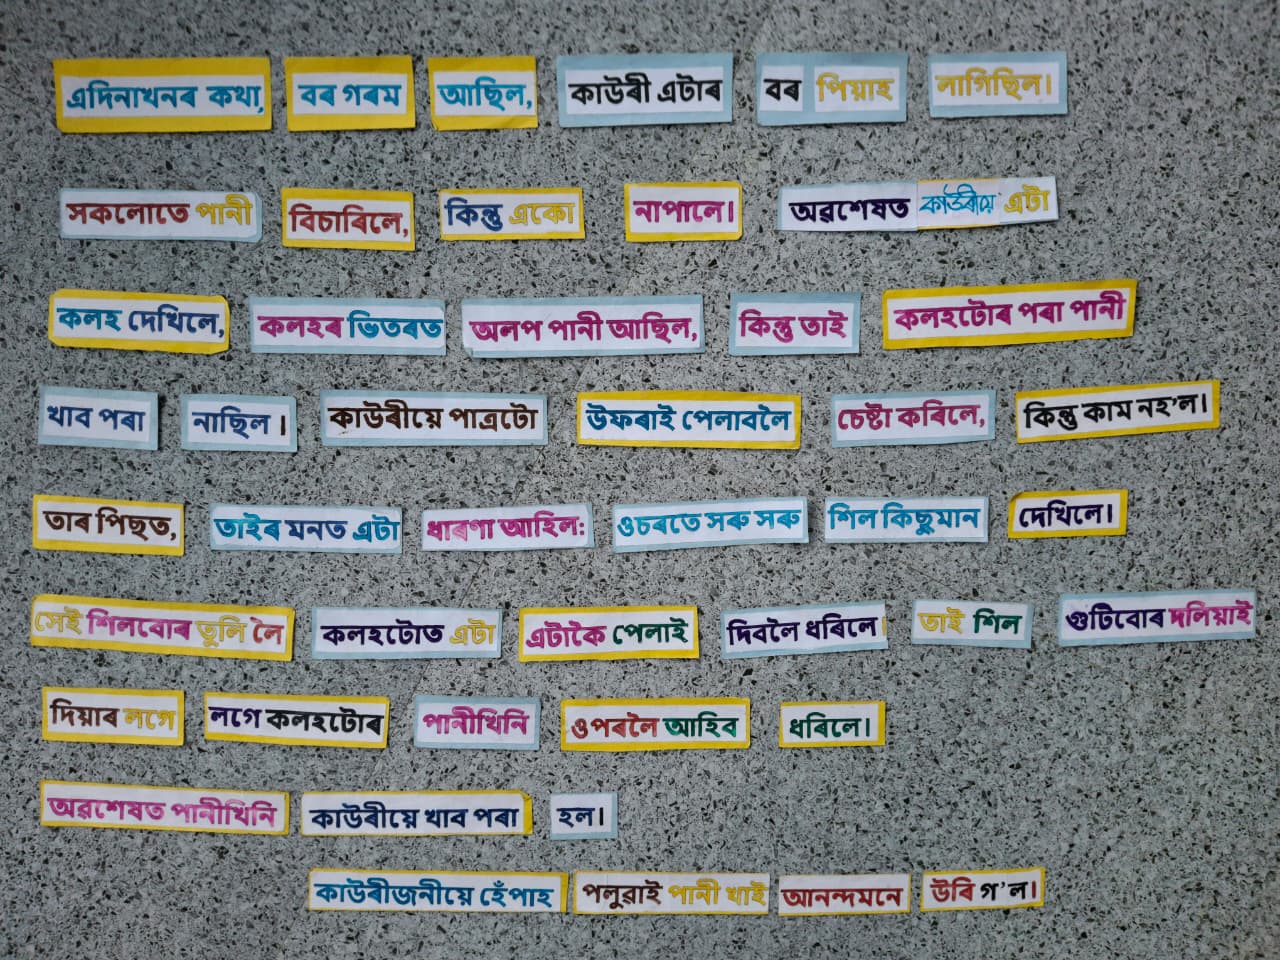 এদিনাখনৰ কথা, বৰ গৰম আছিল, কাউৰী এটাৰ বৰ পিয়াহ লাগিছিল।
সকলোতে পানী বিচাৰিলে, কিন্তু একো নাপালে। অৱশেষত কাউৰীয়ে এটা
কলহ দেখিলে, কলহৰ ভিতৰত অলপ পানী আছিল, কিন্তু তাই কলহটোৰ পৰা পানী
খাব পৰা নাছিল । কাউৰীয়ে পাত্ৰটো উফৰাই পেলাবলৈ চেষ্টা কৰিলে, কিন্তু কাম নহ'ল।
তাৰ পিছত, তাইৰ মনত এটা ধাৰণা আহিল: ওচৰতে সৰু সৰু শিল কিছুমান দেখিলে।
সেই শিলবোৰ তুলি লৈ কলহটোত এটা এটাকৈ পেলাই দিবলৈ ধৰিলে। তাই শিল গুটিবোৰ দলিয়াই
দিয়াৰ লগে লগে কলহটোৰ পানীখিনি ওপৰলৈ আহিব ধৰিলে।
অৱশেষত পানীখিনি কাউৰীয়ে খাব পৰা হল।
কাউৰীজনীয়ে হেঁপাহ পলুৱাই পানী খাই আনন্দমনে উৰি গ'ল।